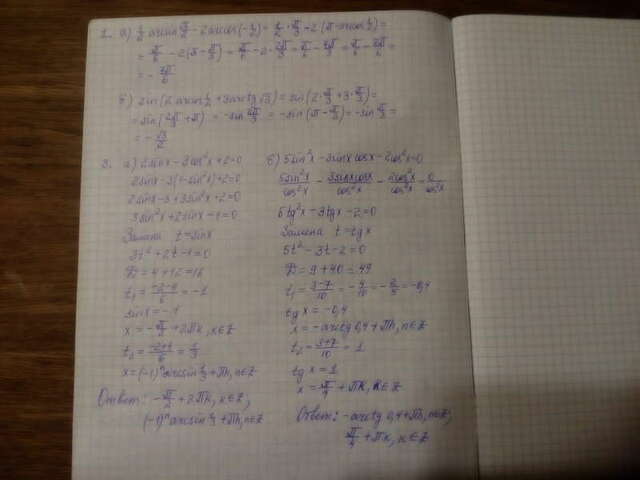 1. а) 1/2 arcsin √3/2 - 2 arccos(-1/2) = 1/2 · π/3 - 2(π - arccos 1/2) =
= π/6 - 2(π - π/3) = π/6 - 2 · 2π/3 = π/6 - 4π/3 = π/6 - 8π/6 =
= - 7π/6
б) sin(2 arccos 1/2 + 3 arctg √3) = sin(2 · π/3 + 3 · π/3) =
= sin(2π/3 + π) = -sin 2π/3 = -sin(π - π/3) = -sin π/3 =
= - √3/2
3. а) 2sinx - 3cos²x + 2 = 0
2sinx - 3(1 - sin²x) + 2 = 0
2sinx - 3 + 3sin²x + 2 = 0
3sin²x + 2sinx - 1 = 0
Замена t = sinx
3t² + 2t - 1 = 0
D = 4 + 12 = 16
t₁ = (-2-4)/6 = -1
sinx = -1
x = - π/2 + 2πk, k∈Z
t₂ = (-2+4)/6 = 1/3
x = (-1)ⁿ arcsin 1/3 + πn, n∈Z
Ответ: - π/2 + 2πk, k∈Z,
(-1)ⁿ arcsin 1/3 + πn, n∈Z
б) 5sin²x - 3sinx cosx - 2cos²x = 0
5sin²x/cos²x - 3sinxcosx/cos²x - 2cos²x/cos²x = 0/cos²x
5tg²x - 3tgx - 2 = 0
Замена t = tgx
5t² - 3t - 2 = 0
D = 9 + 40 = 49
t₁ = (3-7)/10 = - 4/10 = - 2/5 = -0,4
tg x = -0,4
x = -arctg 0,4 + πn, n∈Z
t₂ = (3+7)/10 = 1
tg x = 1
x = π/4 + πk, k∈Z
Ответ: -arctg 0,4 + πn, n∈Z,
π/4 + πk, k∈Z